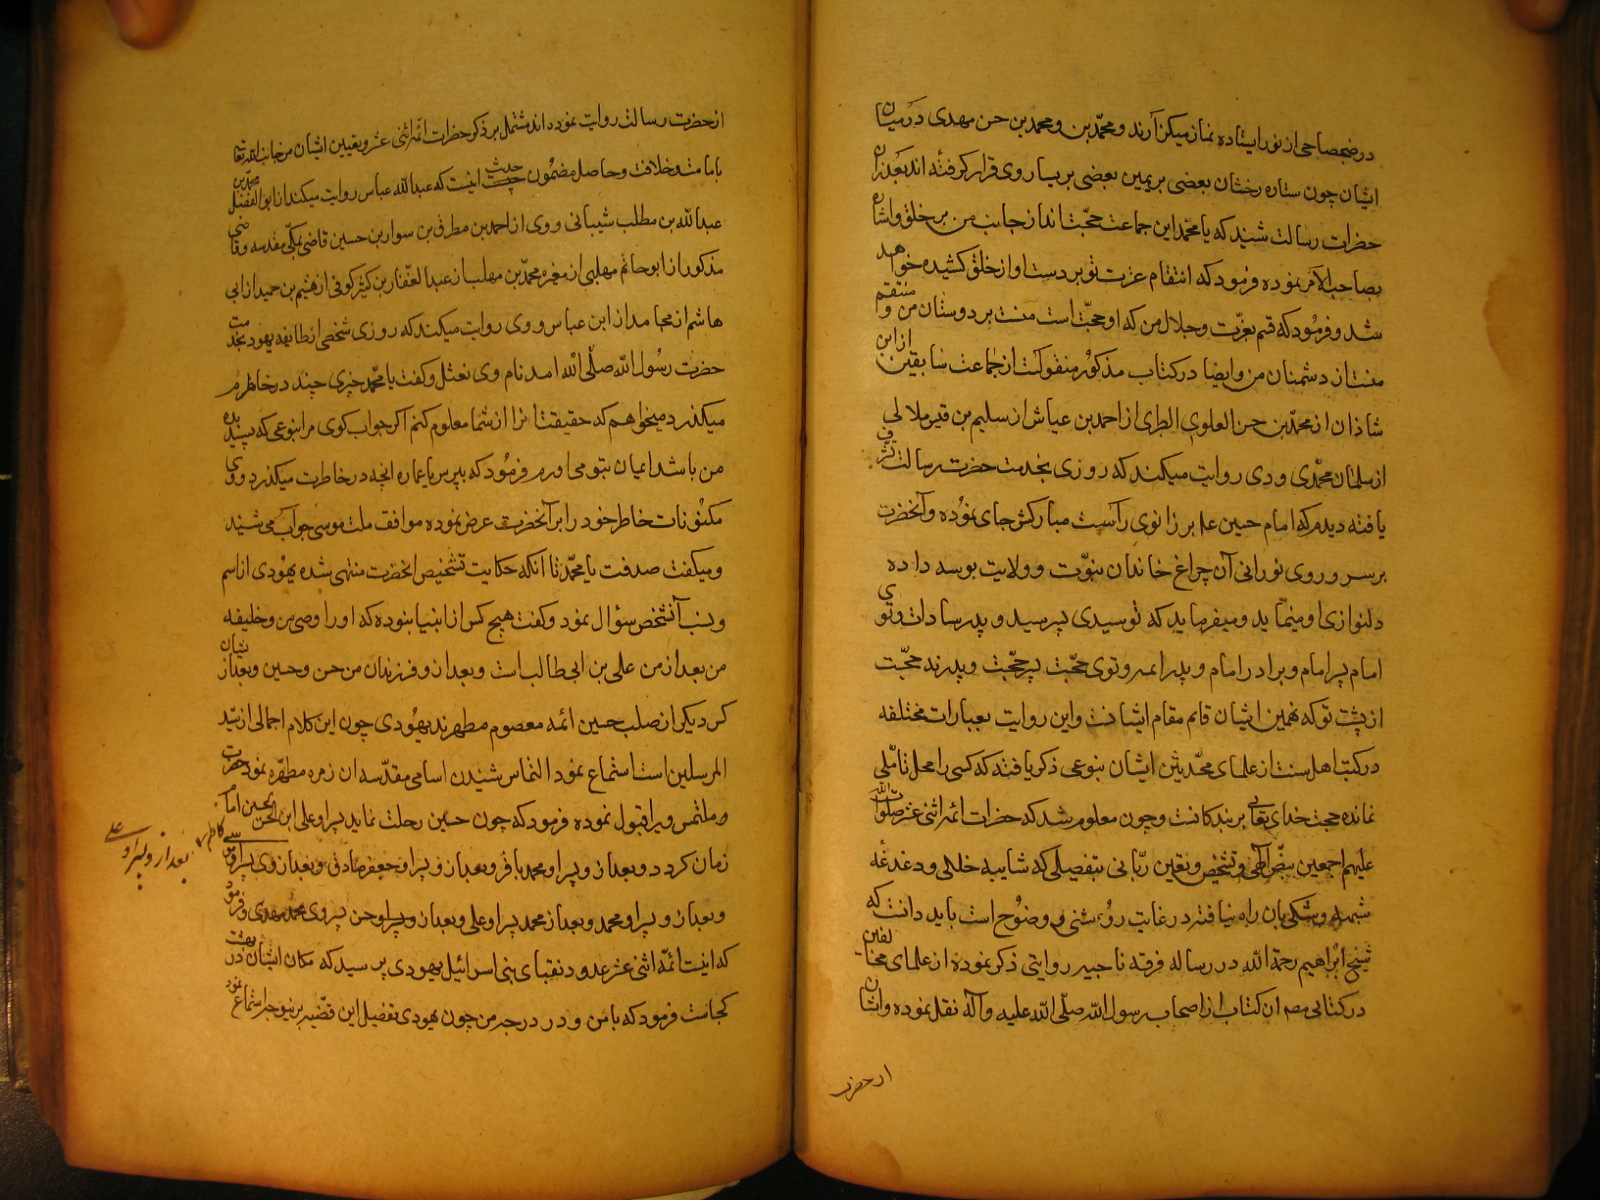 در ضحضاحی از نور ایستاده نماز میکزارند و محمّد بن و محمد بن حسن مهدی در میان
ایشان چون ستاره رخشان بعضی بر یمین بعضی بر یسار وی قرار کرفته اند بعد از ان
حضرات رسالت شنید که یا محمّد این جماعت حجّت اند از جانب من بر خلق و اشاره
بصاحب الامر نموده فرمود که انتقام عزت تو بر دست او از خلق کشیده خواهد
شد و فرمود که قسم بعزّت و جلال من که او حجّت است منت بر دوستان من و منتقم
منست از دشمنان من و ایضا در کتاب مذکور منقولست از جماعت سابقین از ابن
شاذان از محمّد بن حسن العلوی الطبری از احمد بن عیاش از سلیم بن قیس هلالی
از سلمان محمّدی و وی روایت میکند که روزی بخدمت حضرت رسالت تشرف
یافته دیدم که امام حسین علیه بر زانوی راست مبارکش جای نموده و آنحضرت
بر سر و روی نورانی آن چراغ خاندان نبوّت و ولایت بوسه داده
دلنوازی او مینماید و میفرماید که تو سیدی پسر سید و پدر سادات و توی
امام پسر امام و برادر امام و پدر ائمه و توی حجّت پسر حجّت و پدر نه حجّت
از پشت تو که نهمین ایشان قائم مقام ایشانست و این روایت بعبارات مختلفه
در کتب اهل سنت از علمای محدّثین ایشان بنوعی ذکر یافته که کسی را محل تامّلی
نمانده حجت خدای تعالی بر بندکانست و چون معلوم شد که حضرات ائمه اثنی عشر صلوات الله
علیهم اجمعین بنصّ الهی و تشخیص و تعین ربّانی بتفصیلی که شایبه خللی و دغدغه
شبهه و شکی بان راه نیافته در غایت روشنی و وضوح است باید دانست که
شیخ ابراهیم رحمة الله در رساله فرقه ناجیه روایتی ذکر نموده از علمای مخالفین
در کتابی ان کتاب از اصحاب رسول الله صلّی الله علیه و آله نقل نموده و ایشان
از حضرت
از حضرت رسالت روایت نموده اند مشتمل بر ذکر حضرات ائمه اثنی عشر و تعیین ایشان من جانب الله تعالی
بامامت و خلافت و حاصل مضمون حدیث اینست که عبدالله عباس روایت میکند از ابو الفضل محمّد بن
عبدالله بن مطلب شیبانی و وی از احمد بن مطرق بن سوار بن حسین قاضی مکّی مقدسه و قاضی
مذکور از ابو حاتم مهلبی از مغیره محمّد بن مهلب از عبد الغفار بن کثیر کوفی از هیثم بن حمید از ابی
هاشم از مجاهد از ابن عباس و وی روایت میکند که روزی شخصی از طایفه یهود بخدمت
حضرت رسول الله صلّی الله امد نام وی نعثل و کفت یا محمّد چیزی چند در خاطرم
میکذرد میخواهم که حقیقت انرا از شما معلوم کنم اکر جواب کوی مرا بنوعی که پسندیده
من باشد ایمان بتو می اورم فرمود که بپرس یا عماره انچه در خاطرت میکذرد و وی
مکنونات خاطر خود را بر آنحضرت عرض نموده موافق ملت موسی جواب می شنید
و میکفت صدقت یا محمّد تا انکه حکایت تشخیص انحضرت منتهی شده یهودی از اسم
و نسب آنشخص سؤال نمود و کفت هیچ کس از انبیا نبوده که او را وصی من و خلیفه
من بعد از من علی بن ابی طالب است و بعد از و فرزندان من حسن و حسین و بعد از نیشان
کر دیکر از صلب حسین ائمه معصوم مطهرند یهودی چون این کلام اجمالی از سیّد
المرسلین است استماع نمود التماس شنیدن اسامی مقدّسه ان زمره مطهّره نمود حضرت
و ملتمس ویرا قبول نموده فرمود که چون حسین رحلت نماید پسر او علی ابن الحسین امام
زمان کردد و بعد از و پسر او محمد باقر و بعد از و پسر او جعفر صادق و بعد از وی پسر او موسی کاظم
بعد از و پسر او علی
و بعد از و پسر او محمد و بعد از محمد پسر او علی و بعد از و پسر او حسن پسر وی محمد مهدی و فرمود
که اینست ائمّه اثنی عشر عدد نقبای بنی اسرائیل یهودی پرسید که مکان ایشان در بهشت
کجاست فرمود که با من و در درجه من چون یهودی تفضیل این قضیه برین وجه استماع نمود